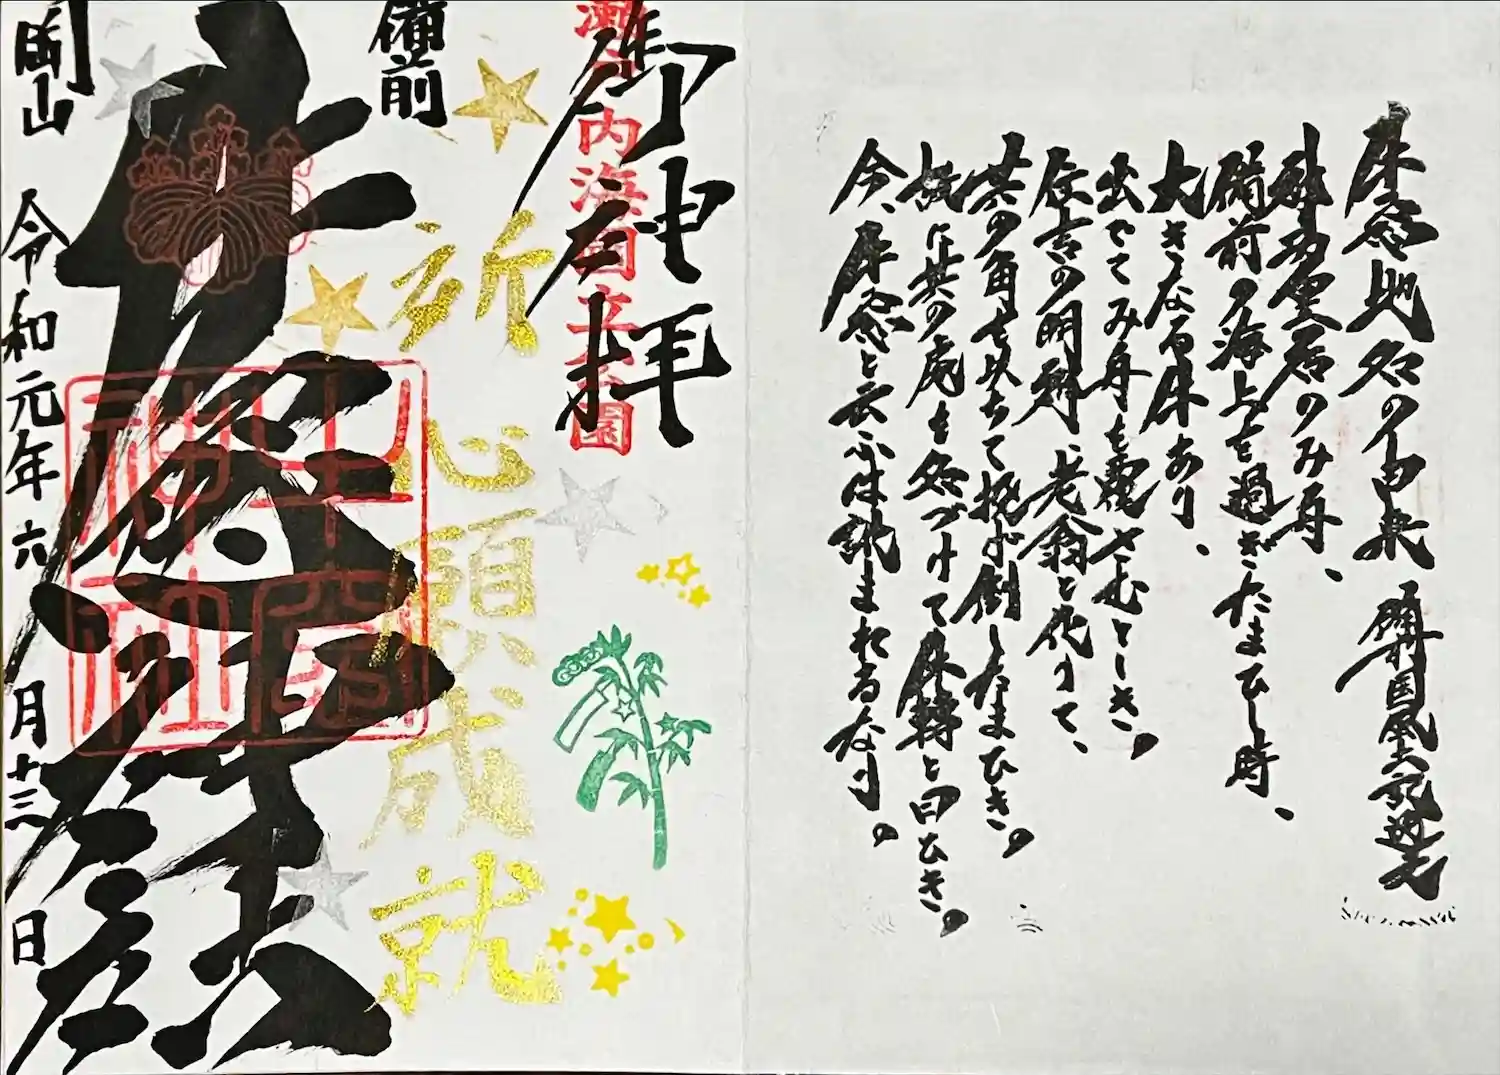 牛窓地名の由来 備前国風土記逸文
神功皇后のみ舟、
備前の海上を過ぎたまひし時、
大きなる牛あり、
出でてみ舟を覆さむとしき。
住吉の明神、老翁と化りて、
其の角を以ちて投げ倒したまひき。
故に其の處を名づけて牛轉と曰ひき。
今、牛窓と云ふは訛まれるなり。
御神拝
瀬戸内海国立公園
祈
心願成就
備前
牛窓神社
牛窓神社
岡山
令和元年六月十三日